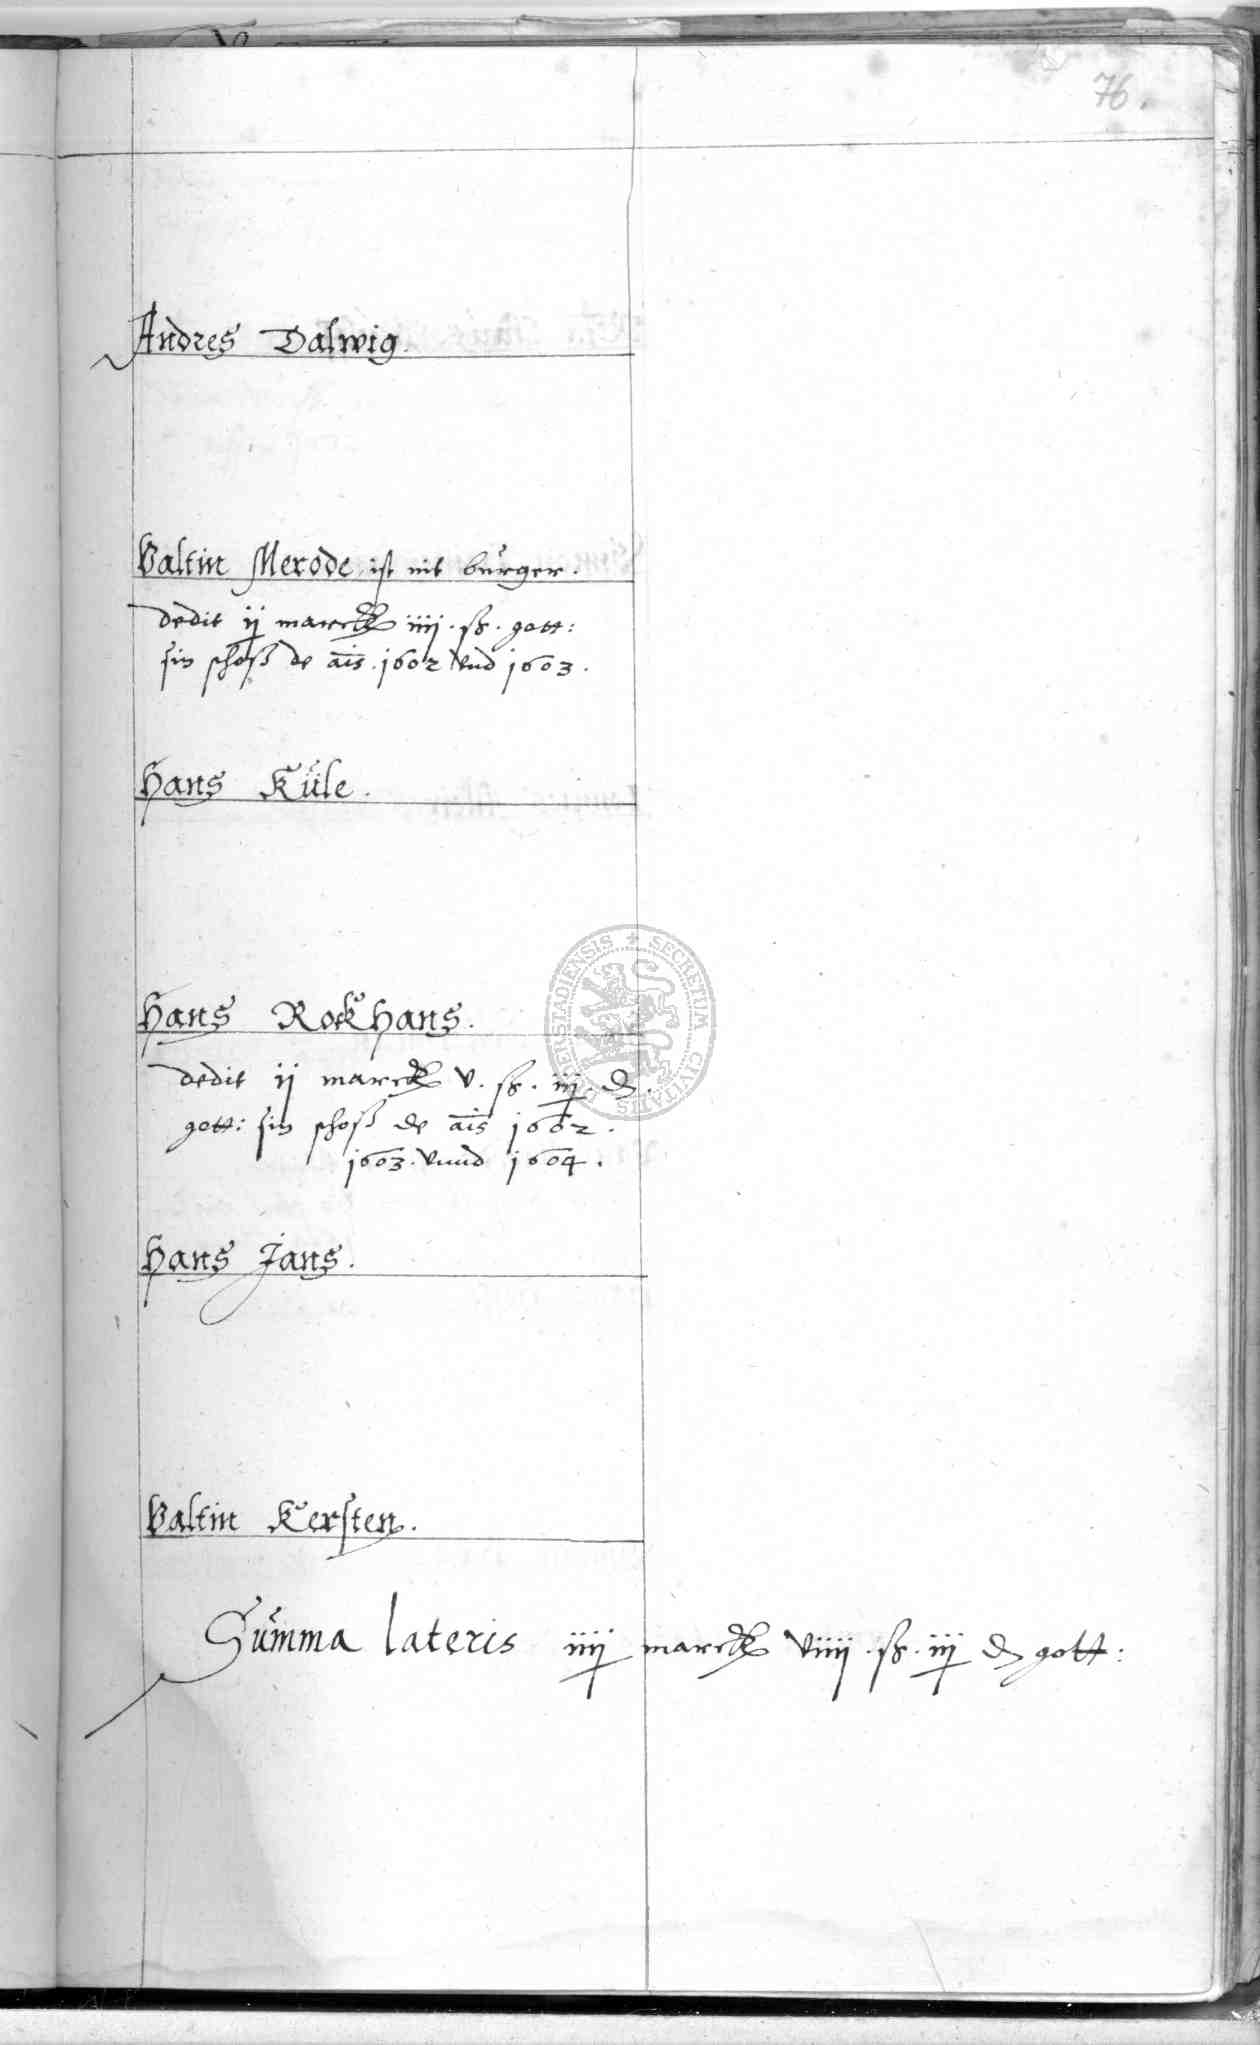 76.
Andres Dalwig.
Valtin Merode ist nit burger.
dedit ij marck iiij. ß. gott:
sin schoß de ais. 1602 vnd 1603.
Hans Küle.
Hans Rockhans.
dedit ij marck v. ß. iij. d.
gott: sin schoß de ais 1602.
1603. vnnd 1604.
Hans Jans.
Valtin Kersten.
Summa lateris iiij marck viiij. ß. iij d gott:
SECRETUM CIVITATIS